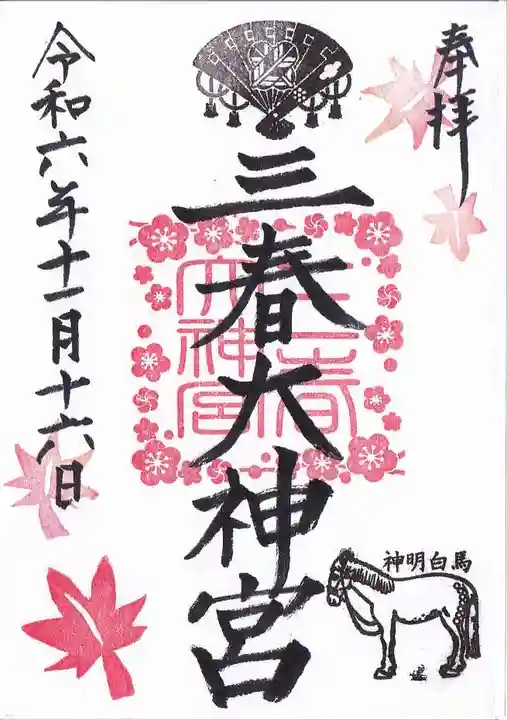 奉拝
三春大神宮
三春大神宮
令和六年十一月十六日
神明白馬